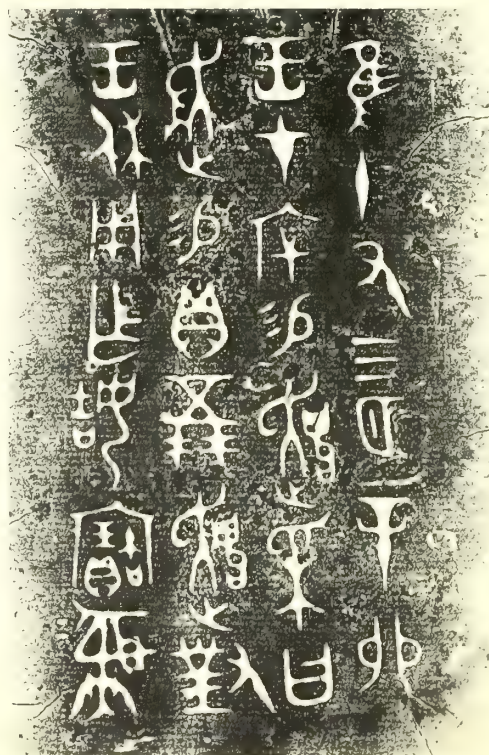 隹十又三月辛卯
王才厈易趞采曰
䞈易貝五朋趞對
王休用乍姞寶彝